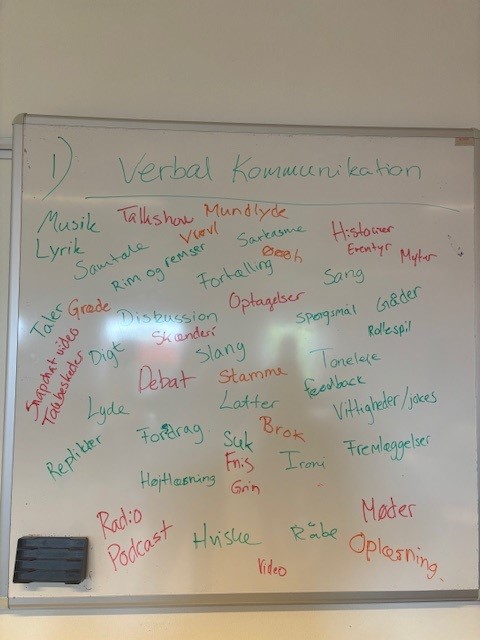 1) Verbal Kommunikation
Musik Talkshow Mundlyde
Lyrik Vrøvl Sarkasme Historier
Samtale Rim og remser Øøøh Eventyr Myter
Fortælling Sang
Taler Græde Optagelser Gåder
Diskussion Spørgsmål
Skænderi Rollespil
Snapchat video
Talebeskeder
Digt Slang Toneleje
Debat Stamme feedback
Lyde Latter Vittigheder/jokes
Replikker Fordrag Suk Brok Fremlæggelser
Fnis Ironi
Højtlæsning Grin
Radio Møder
Podcast Hviske Råbe Oplæsning.
Video